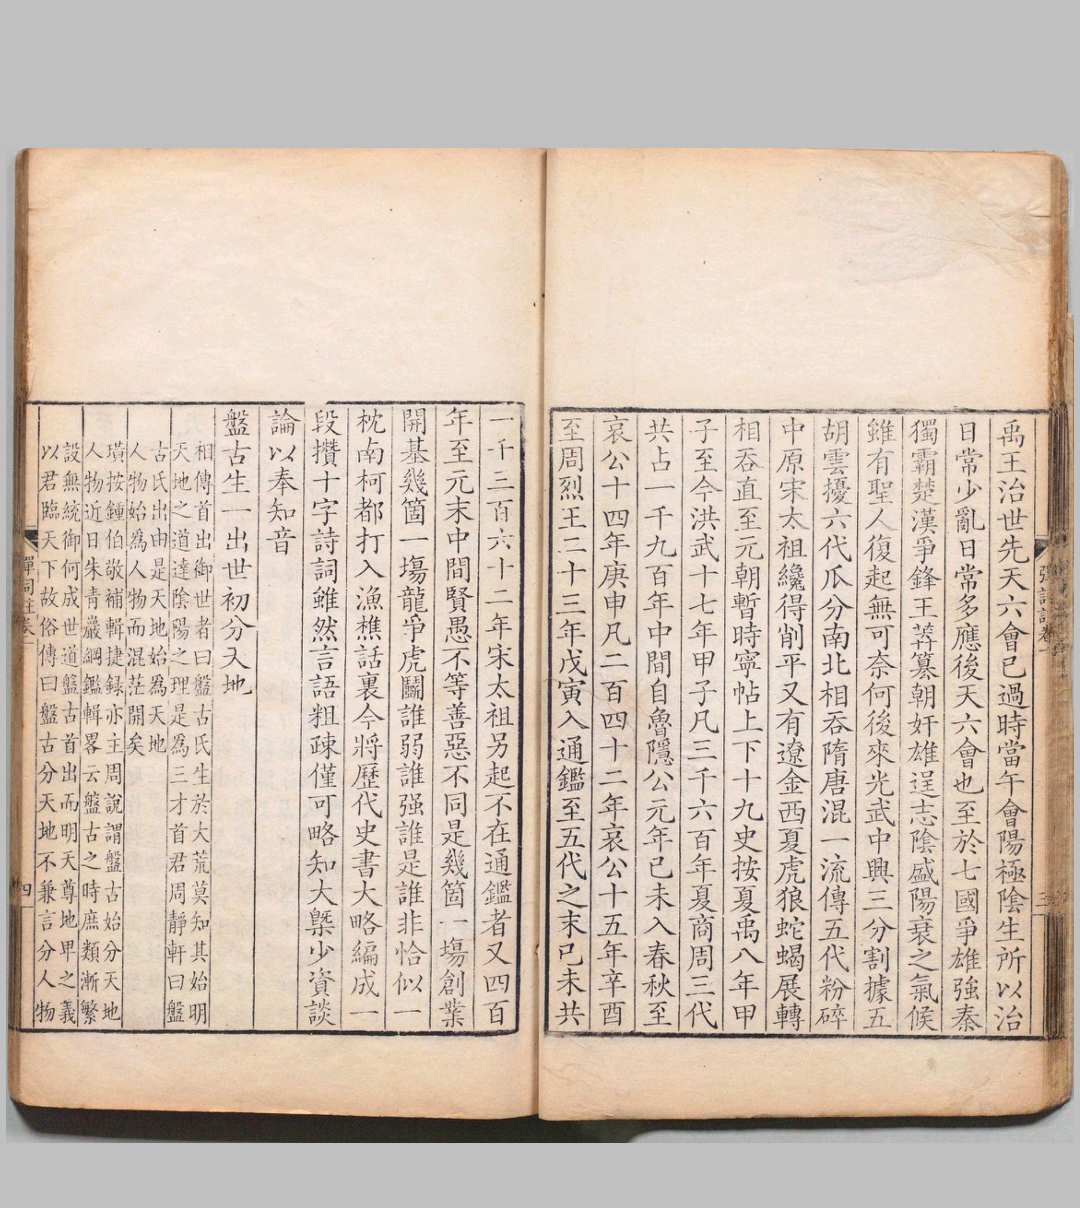 禹王治世先天六會已過時當午會陽極陰生所以治
日常少亂日常多應後天六會也至於七國爭雄強秦
獨霸楚漢爭鋒王莽篡朝奸雄逞志陰盛陽衰之氣候
雖有聖人復起無可奈何後來光武中興三分割據五
胡雲擾六代瓜分南北相吞隋唐混一流傳五代粉碎
中原宋太祖纔得削平又有遼金西夏虎狼蛇蝎展轉
相吞直至元朝暫時寧帖上下十九史按夏禹八年甲
子至今洪武十七年甲子凡三千六百年夏商周三代
共占一千九百年中間自魯隱公元年己未入春秋至
哀公十四年庚申凡二百四十二年哀公十五年辛酉
至周烈王二十三年戊寅入通鑑至五代之末己未共
一千三百六十二年宋太祖另起不在通鑑者又四百
年至元末中間賢愚不等善惡不同是幾箇一塲創業
開基幾箇一塲龍爭虎鬬誰弱誰强誰是誰非恰似一
枕南柯都打入漁樵話裏今將歷代史書大略編成一
段攢十字詩詞雖然言語粗疎僅可略知大槩少資談
論以奉知音
盤古生一出世初分天地
相傳首出御世者曰盤古氏生於大荒莫知其始明
天地之道達陰陽之理是爲三才首君周靜軒曰盤
古氏出由是天地始爲天地
人物始爲人物而混茫開矣
璜按鍾伯敬補輯捷録亦主周說謂盤古始分天地
人物近日朱青巖綱鑑輯畧云盤古之時庶類漸繁
設無統御何成世道盤古首出而明天尊地卑之義
以君臨天下故俗傳曰盤古分天地不兼言分人物
彈詞註卷一
四